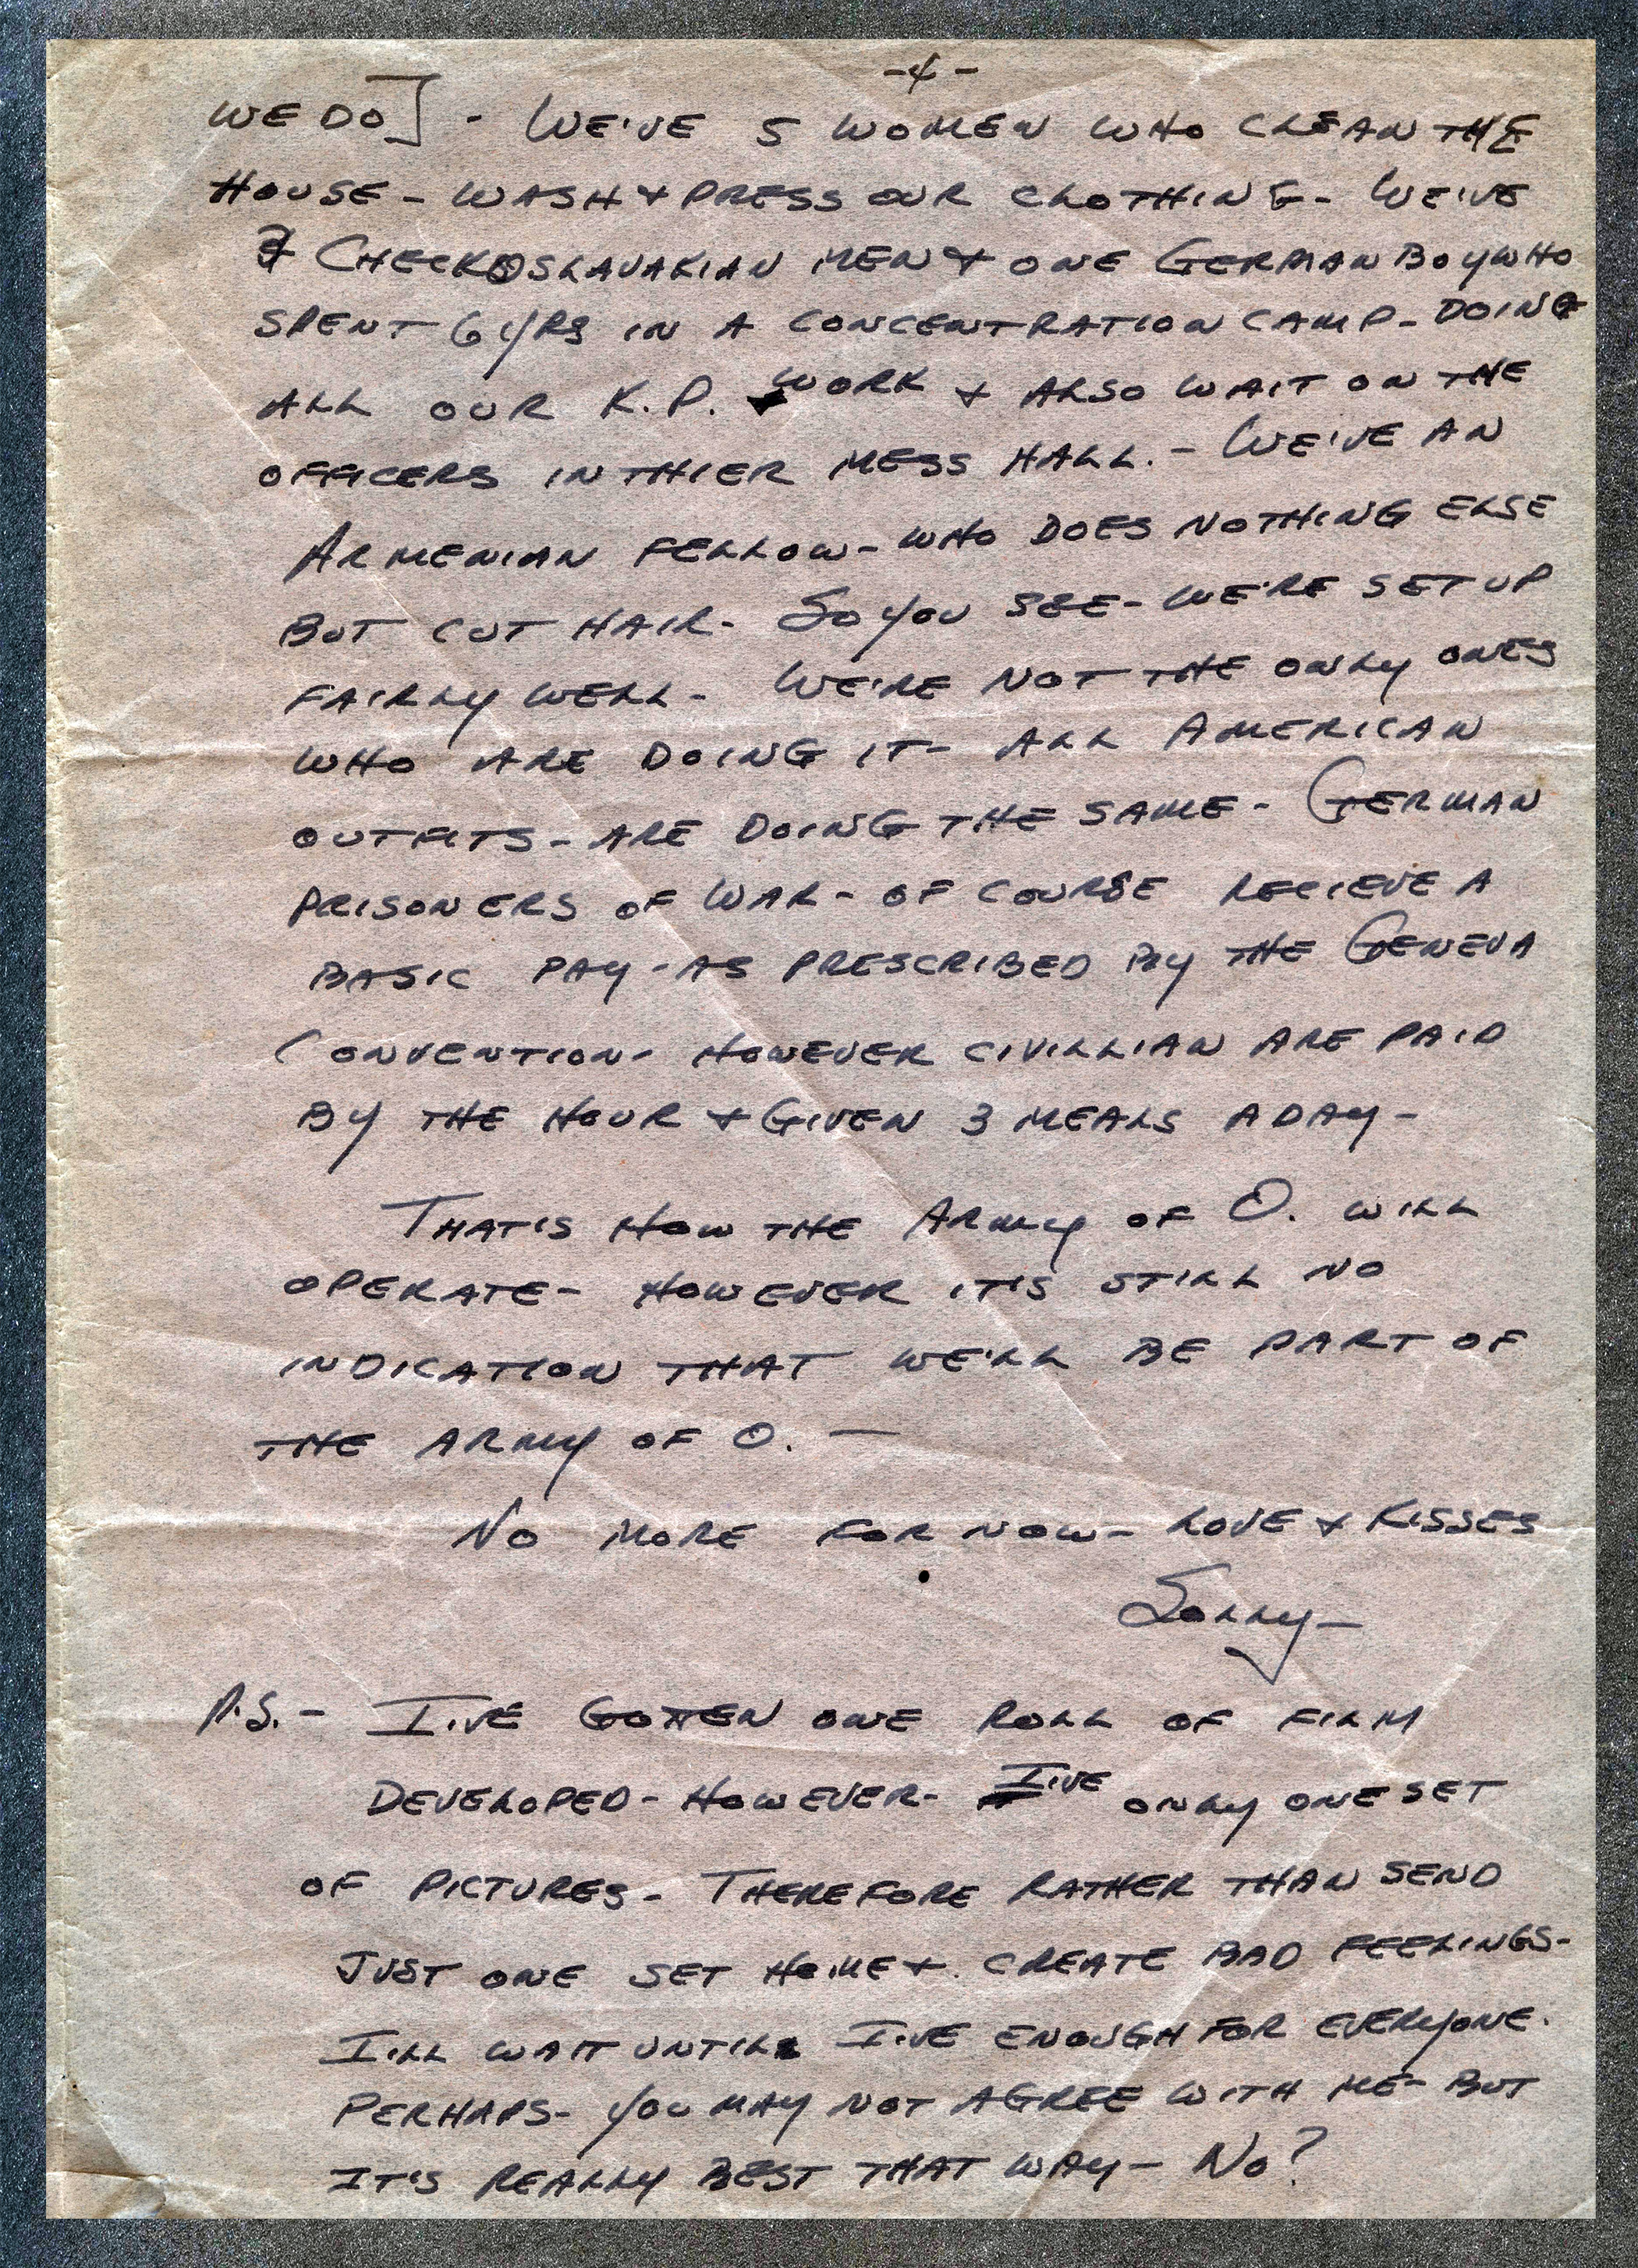 -4-
WE DO] - WE'VE 5 WOMEN WHO CLEAN THE
HOUSE - WASH & PRESS OUR CLOTHING - WE'VE
CHECKOSLAVAKIAN MEN & ONE GERMAN BOY WHO
SPENT 6 YRS IN A CONCENTRATION CAMP - DOING
ALL OUR K.P. WORK & ALSO WAIT ON THE
OFFICERS IN THIER MESS HALL. - WE'VE AN
ARMENIAN FELLOW - WHO DOES NOTHING ELSE
BUT CUT HAIR - SO YOU SEE - WE'RE SET UP
FAIRLY WELL - WE'RE NOT THE ONLY ONES
WHO ARE DOING IT - ALL AMERICAN
OUTFITS - ARE DOING THE SAME - GERMAN
PRISONERS OF WAR - OF COURSE RECIEVE A
BASIC PAY - AS PRESCRIBED BY THE GENEVA
CONVENTION - HOWEVER CIVILLIAN ARE PAID
BY THE HOUR & GIVEN 3 MEALS A DAY -
THAT'S HOW THE ARMY OF O. WILL
OPERATE - HOWEVER IT'S STILL NO
INDICATION THAT WE'LL BE PART OF
THE ARMY OF O. —
NO MORE FOR NOW - LOVE & KISSES
Solly -
P.S. - I'VE GOTTEN ONE ROLL OF FILM
DEVELOPED - HOWEVER - I'VE ONLY ONE SET
OF PICTURES - THEREFORE RATHER THAN SEND
JUST ONE SET HOME & CREATE BAD FEELINGS -
I'LL WAIT UNTIL I'VE ENOUGH FOR EVERYONE.
PERHAPS - YOU MAY NOT AGREE WITH ME - BUT
IT'S REALLY BEST THAT WAY - NO?